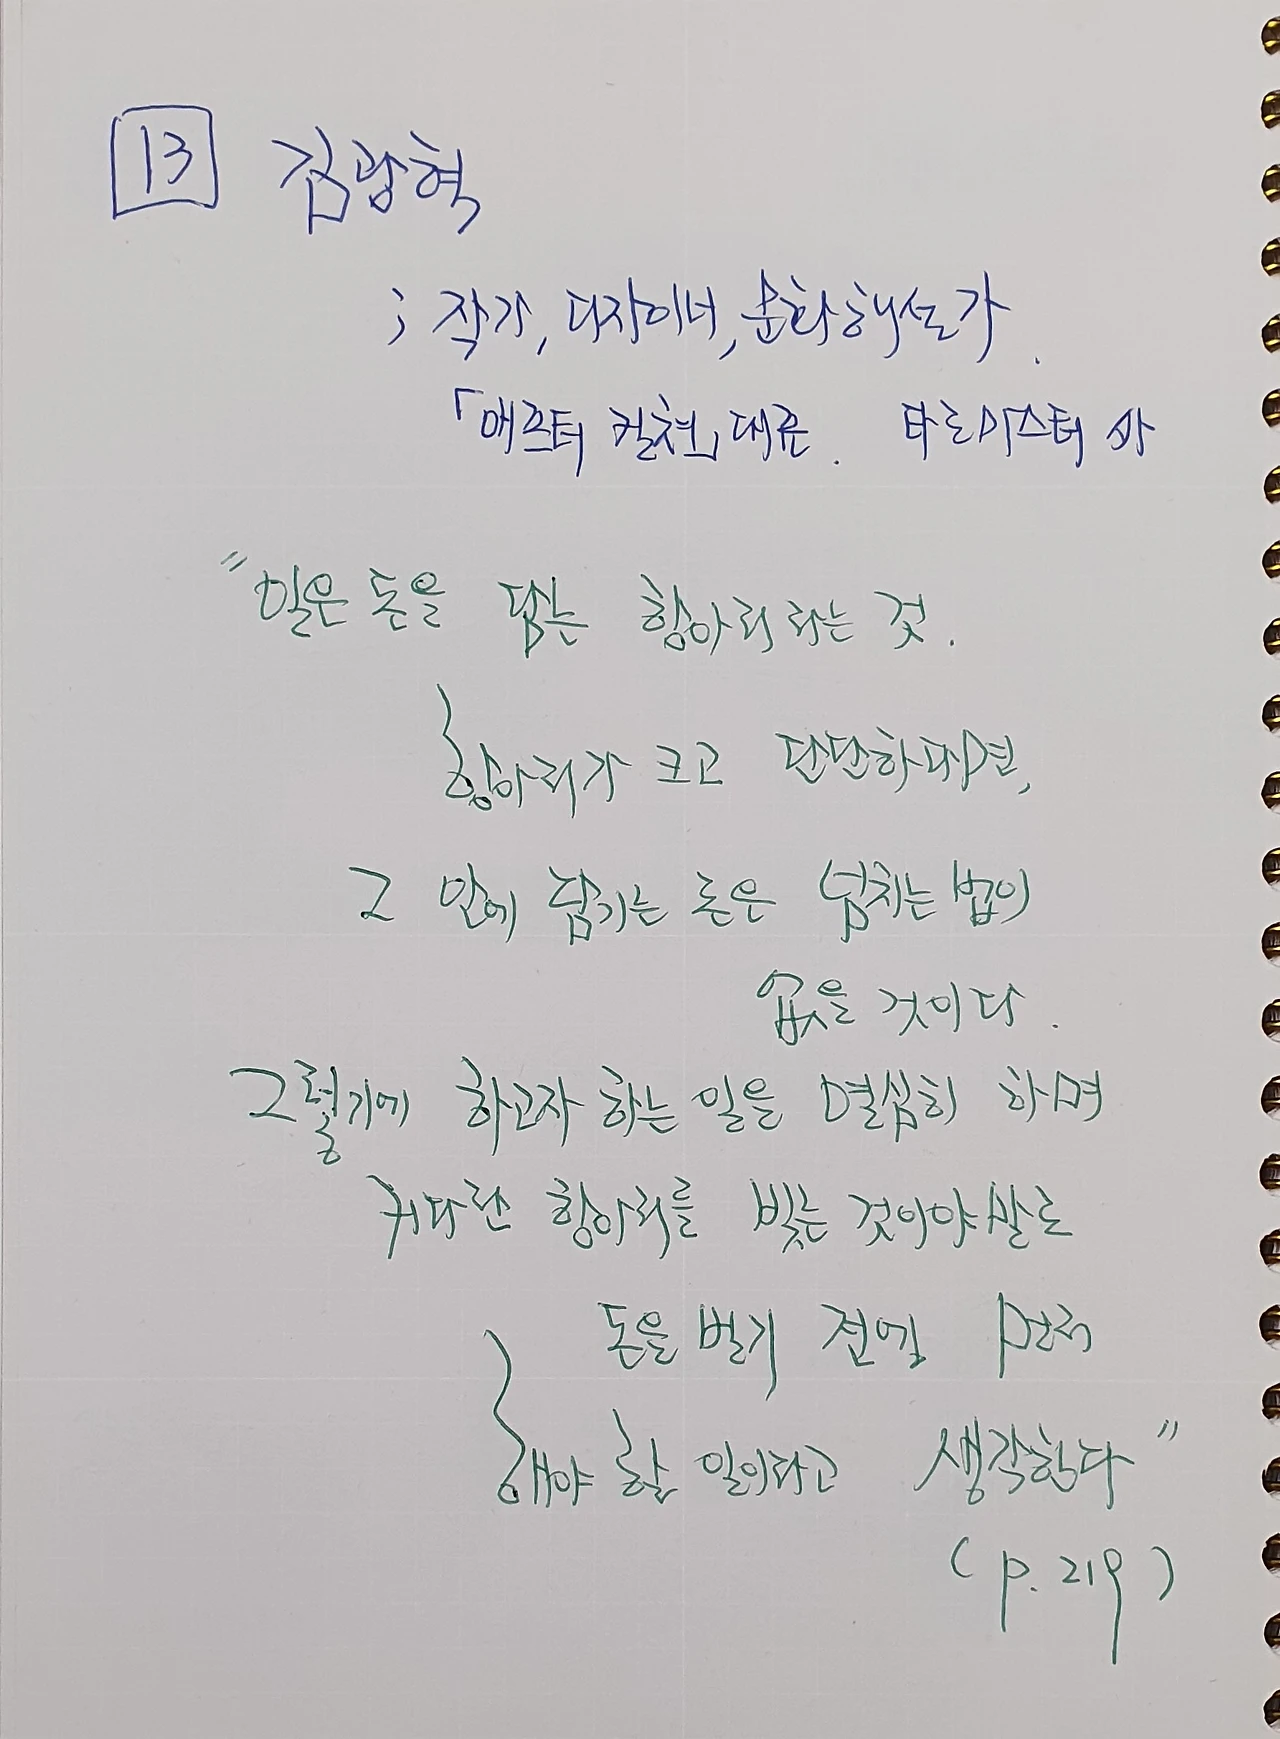 13 김광혁
; 작가, 디자이너, 문화해설가.
「애프터 컬쳐」대표. 타로마스터 샤
"일은 돈을 담는 항아리라는 것.
항아리가 크고 단단하다면,
그 안에 담기는 돈은 넘치는 법이
없을 것이다.
그렇기에 하고자 하는 일을 열심히 하며
커다란 항아리를 빚는 것이야말로
돈을 벌기 전에 먼저
해야 할 일이라고 생각한다"
(p. 219)